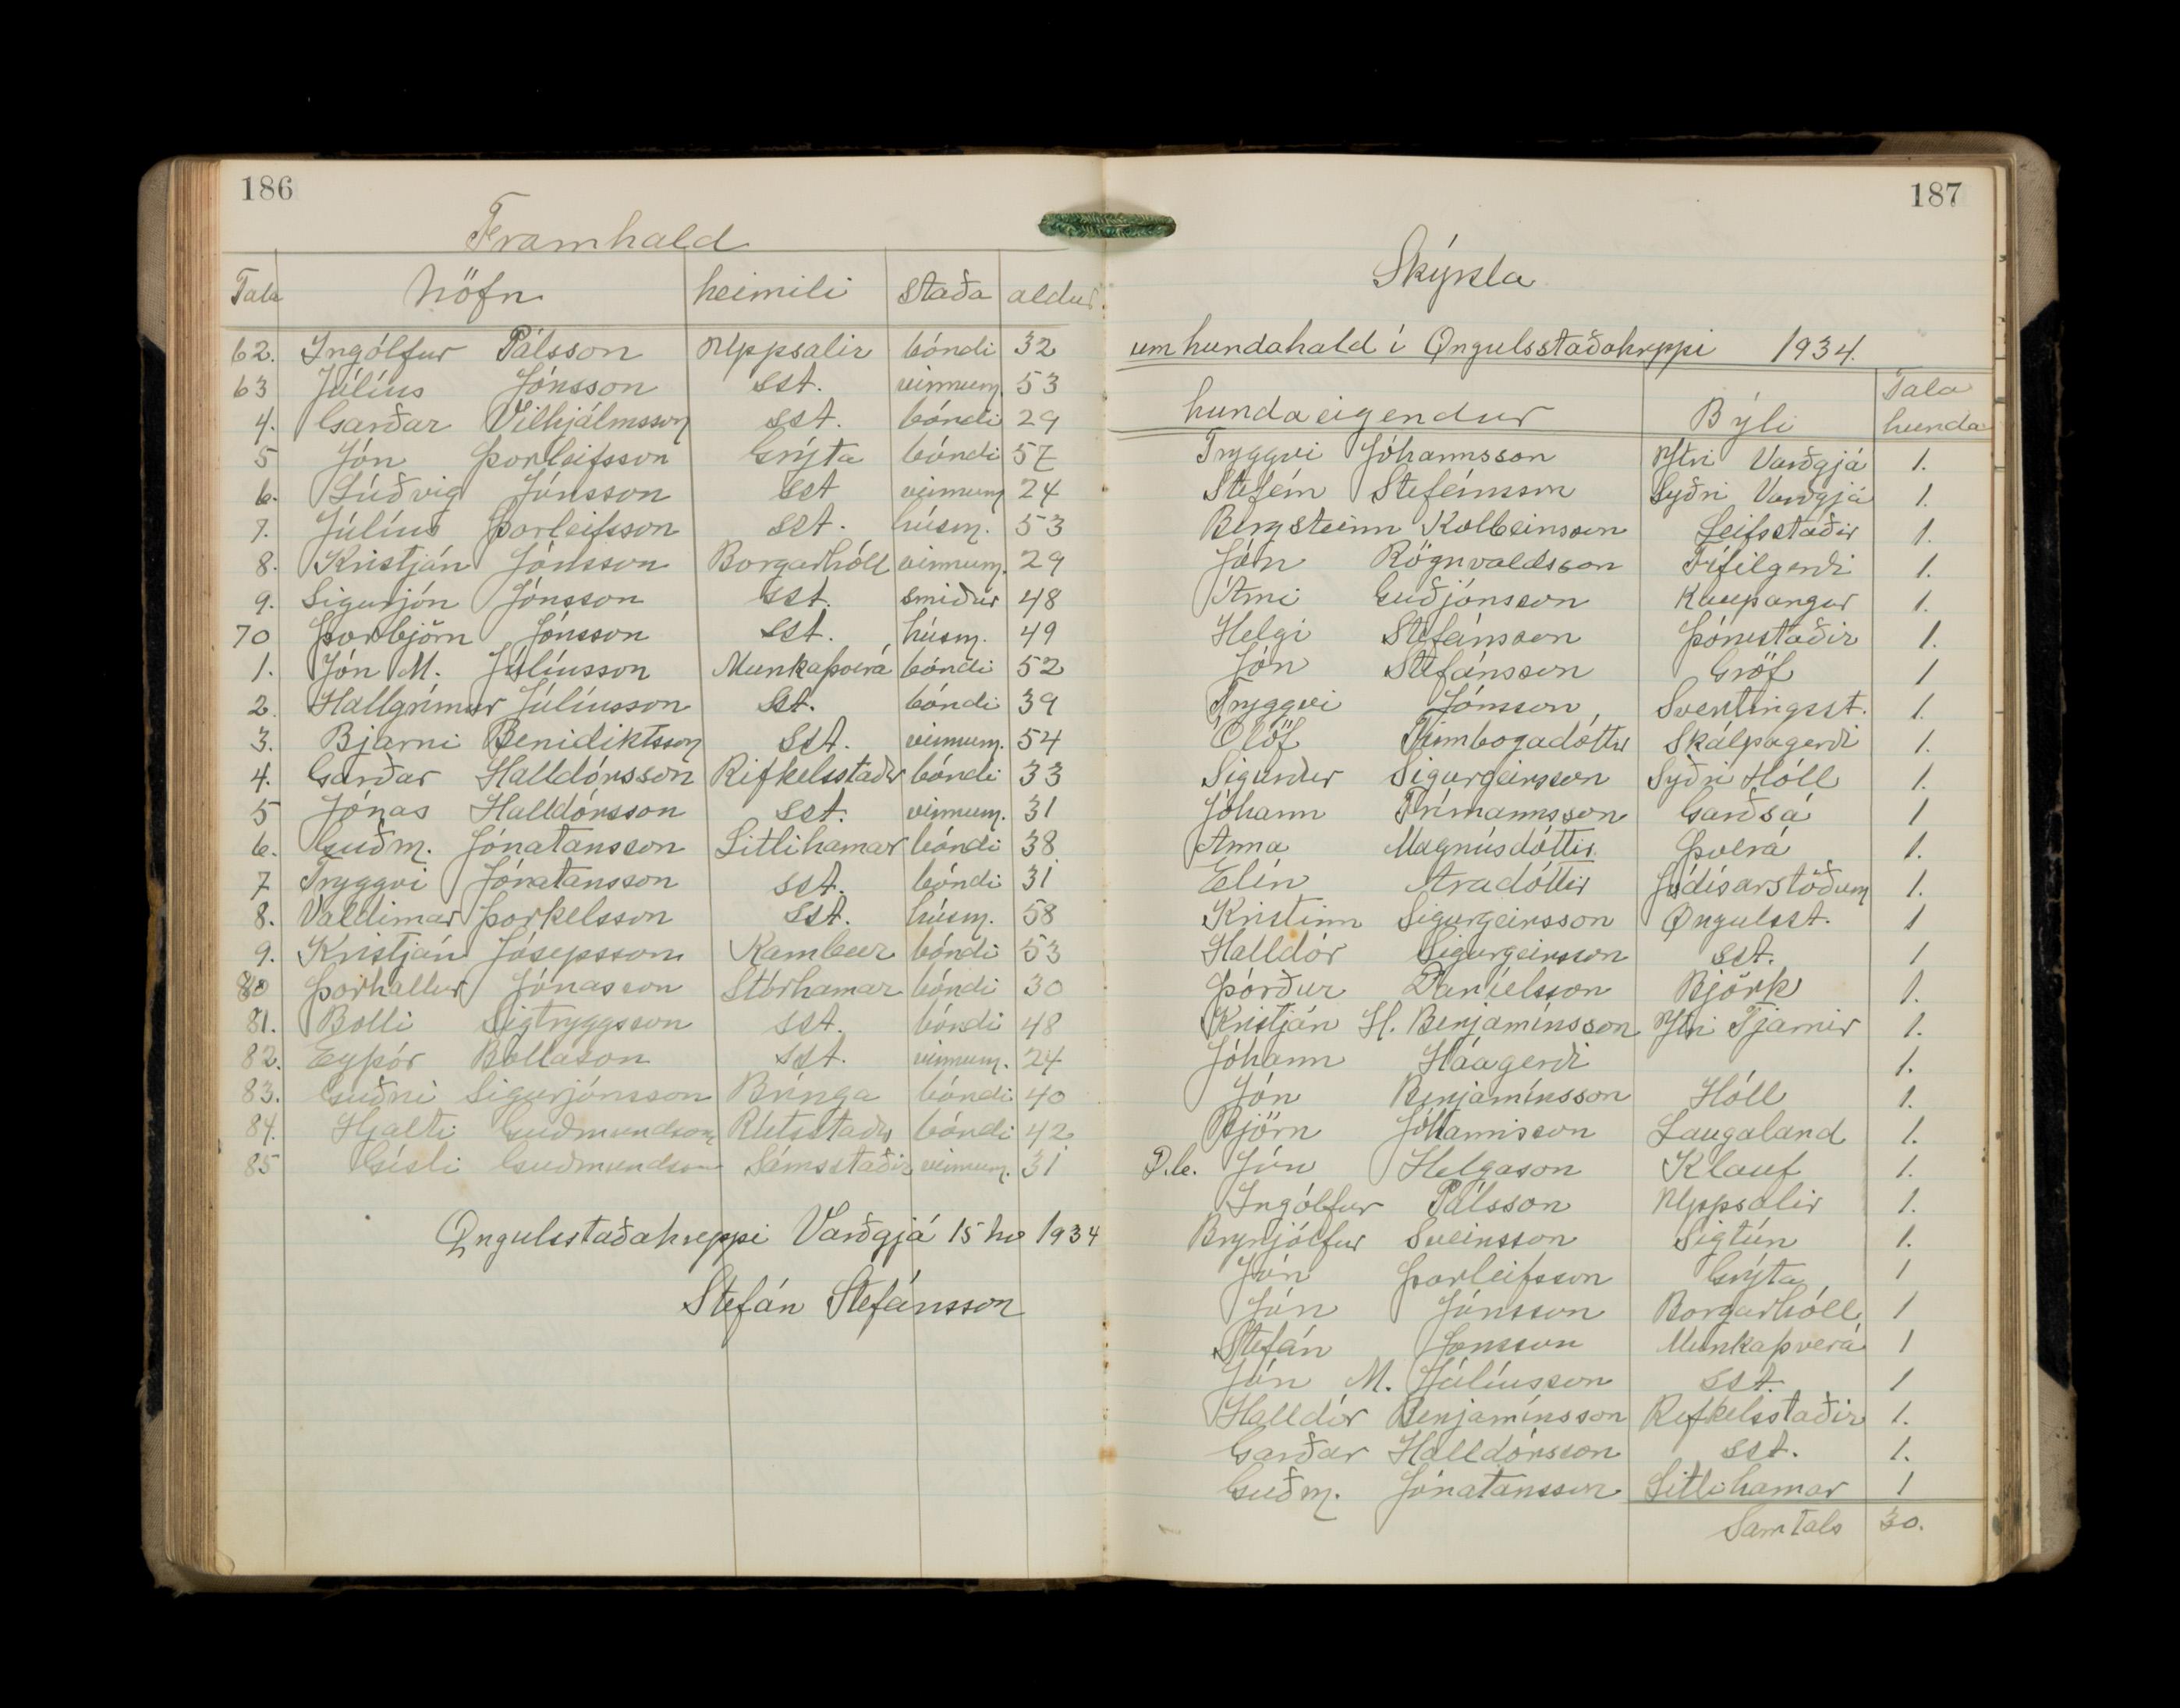 186
Framhald
Tala nöfn heimili staða aldur
62. Ingólfur Pálsson Uppsalir bóndi 32
63 Júlíus Jónsson sst. vinnum. 53
4. Garðar Vilhjálmsson sst. bóndi 29
5 Jón Þorleifsson Grýta bóndi 57
6. Lúðvig Jónsson sst vinnum. 24
7. Júlíus Þorleifsson sst. húsm. 53
8. Kristján Jónsson Borgarhóll vinnum. 29
9. Sigurjón Jónsson sst. smiður 48
70 Þorbjörn Jónsson sst. húsm. 49
1. Jón M. Júlíusson Munkaþverá bóndi 52
2. Hallgrímur Júlíusson sst. bóndi 39
3. Bjarni Benidiktsson sst. vinnum. 54
4. Garðar Halldórsson Rifkelsstaðir bóndi 33
5 Jónas Halldórsson sst. vinnum. 31
6. Guðm. Jónatansson Litlihamar bóndi 38
7 Tryggvi Jónatansson sst. bóndi 31
8. Valdimar Þorkelsson sst. húsm. 58
9. Kristján Jósepsson Kambur bóndi 53
80 Þórhallur Jónasson Stórhamar bóndi 30
81. Bolli Sigtryggsson sst. bóndi 48
82. Eyþór Bollason sst. vinnum. 24
83. Guðni Sigurjónsson Bringa bóndi 40
84. Hjalti Guðmundsson Rútsstaðir bóndi 42
85 Gísli Guðmundsson Sámsstaðir vinnum. 31
Öngulsstaðahreppi Varðgjá 15 1934
Stefán Stefánsson
187
Skýrsla
um hundahald í Öngulsstaðahreppi 1934.
hundaeigendur Býli Tala hunda
Tryggvi Jóhannsson Ytri Varðgjá 1.
Stefán Stefánsson Syðri Varðgjá 1.
Bergsteinn Kolbeinsson Leifsstaðir 1.
Jón Rögnvaldsson Fífilgerði 1.
Árni Guðjónsson Kaupangur 1.
Helgi Stefánsson Þórustaðir 1.
Jón Stefánsson Gröf 1
Tryggvi Jónsson, Svertingsst. 1.
Ólöf Finnbogadóttir Skálpagerði 1.
Sigurður Sigurgeirsson Syðri Hóll 1.
Jóhann Frímannsson Garðsá 1
Anna Magnúsdóttir Þverá 1.
Elín Aradóttir Jódísarstöðum 1.
Kristinn Sigurgeirsson Öngulsst. 1
Halldór Sigurgeirsson sst. 1
Þórður Daníelsson Björk 1.
Kristján H. Benjamínsson Ytri Tjarnir 1.
Jóhann Háagerði 1.
Jón Benjamínsson Hóll 1.
Björn Jóhannsson Laugaland 1.
Jón Helgason Klauf 1.
Ingólfur Pálsson Uppsalir 1.
Brynjólfur Sveinsson Sigtún 1.
Jón Þorleifsson Grýta 1
Jón Jónsson Borgarhóll 1
Stefán Jónsson Munkaþverá 1
Jón M. Júlíusson sst. 1
Halldór Benjamínsson Rifkelsstaðir 1.
Garðar Halldórsson sst. 1.
Guðm. Jónatansson Litlihamar 1
Samtals 30.